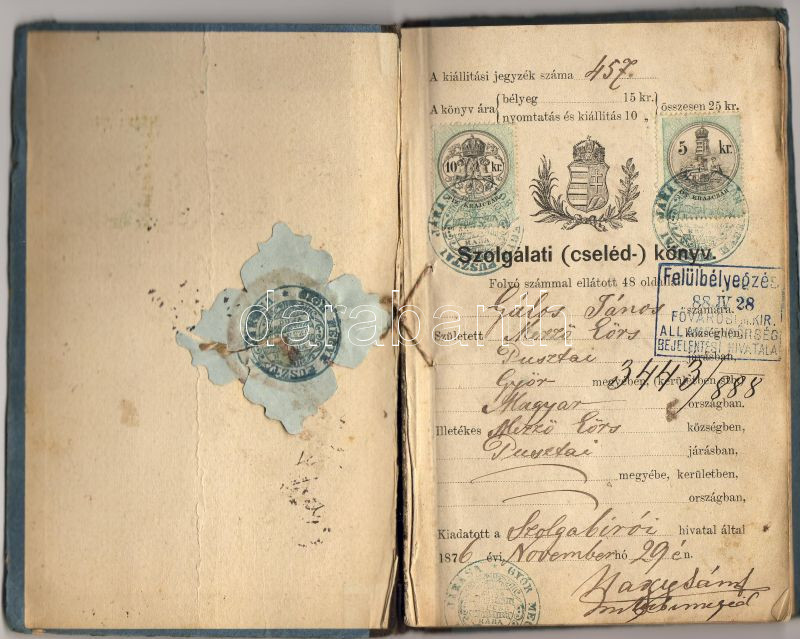 A kiállitási jegyzék száma 457.
A könyv ára { bélyeg 15 kr. } összesen 25 kr.
nyomtatás és kiállitás 10 „
10 kr.
5 kr.
KRAJCZÁR
Szolgálati (cseléd-) könyv.
Folyó számmal ellátott 48 oldallal
Gálos János számára.
Született Mezzö Eörs községben,
Pusztai járásban
Györ megyében, (kerületben stb.)
Magyar országban.
Illetékes Mezzö Eörs községben,
Pusztai járásban,
megyébe, kerületben,
országban,
Kiadatott a Szolgabirói hivatal által
1876 évi November hó 29 én.
Felülbélyegézés
88 IV 28
FŐVÁROSI M. KIR.
ÁLLAM RENDŐRSÉG
BEJELENTÉSI HIVATALA
3443/888
darabanth